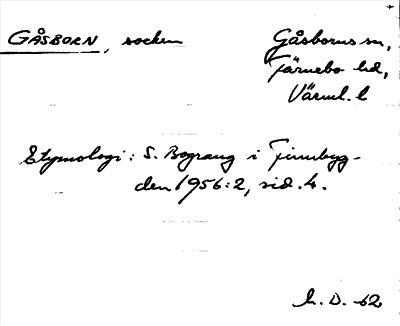 GÅSBORN, socken
Gåsborns sn,
Färnebo hd,
Värml. l
Etymologi: S. Bograng i Finnbyg-
den 1956:2, sid. 4.
h. D. -62